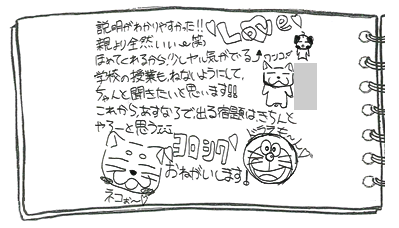 説明がわかりやすかった!!
♡Love♡
親より全然いい〜笑
ほめてくれるから!少しヤル気がでる↗
ワンコ♡
学校の授業も、ねないようにして、
ちゃんと聞きたいと思います!!
これから、あすなろで、出る宿題は、きちんと
やろーと思う
ヨロシク
おねがいします!
ドラえもん
ネコぉ〜♡